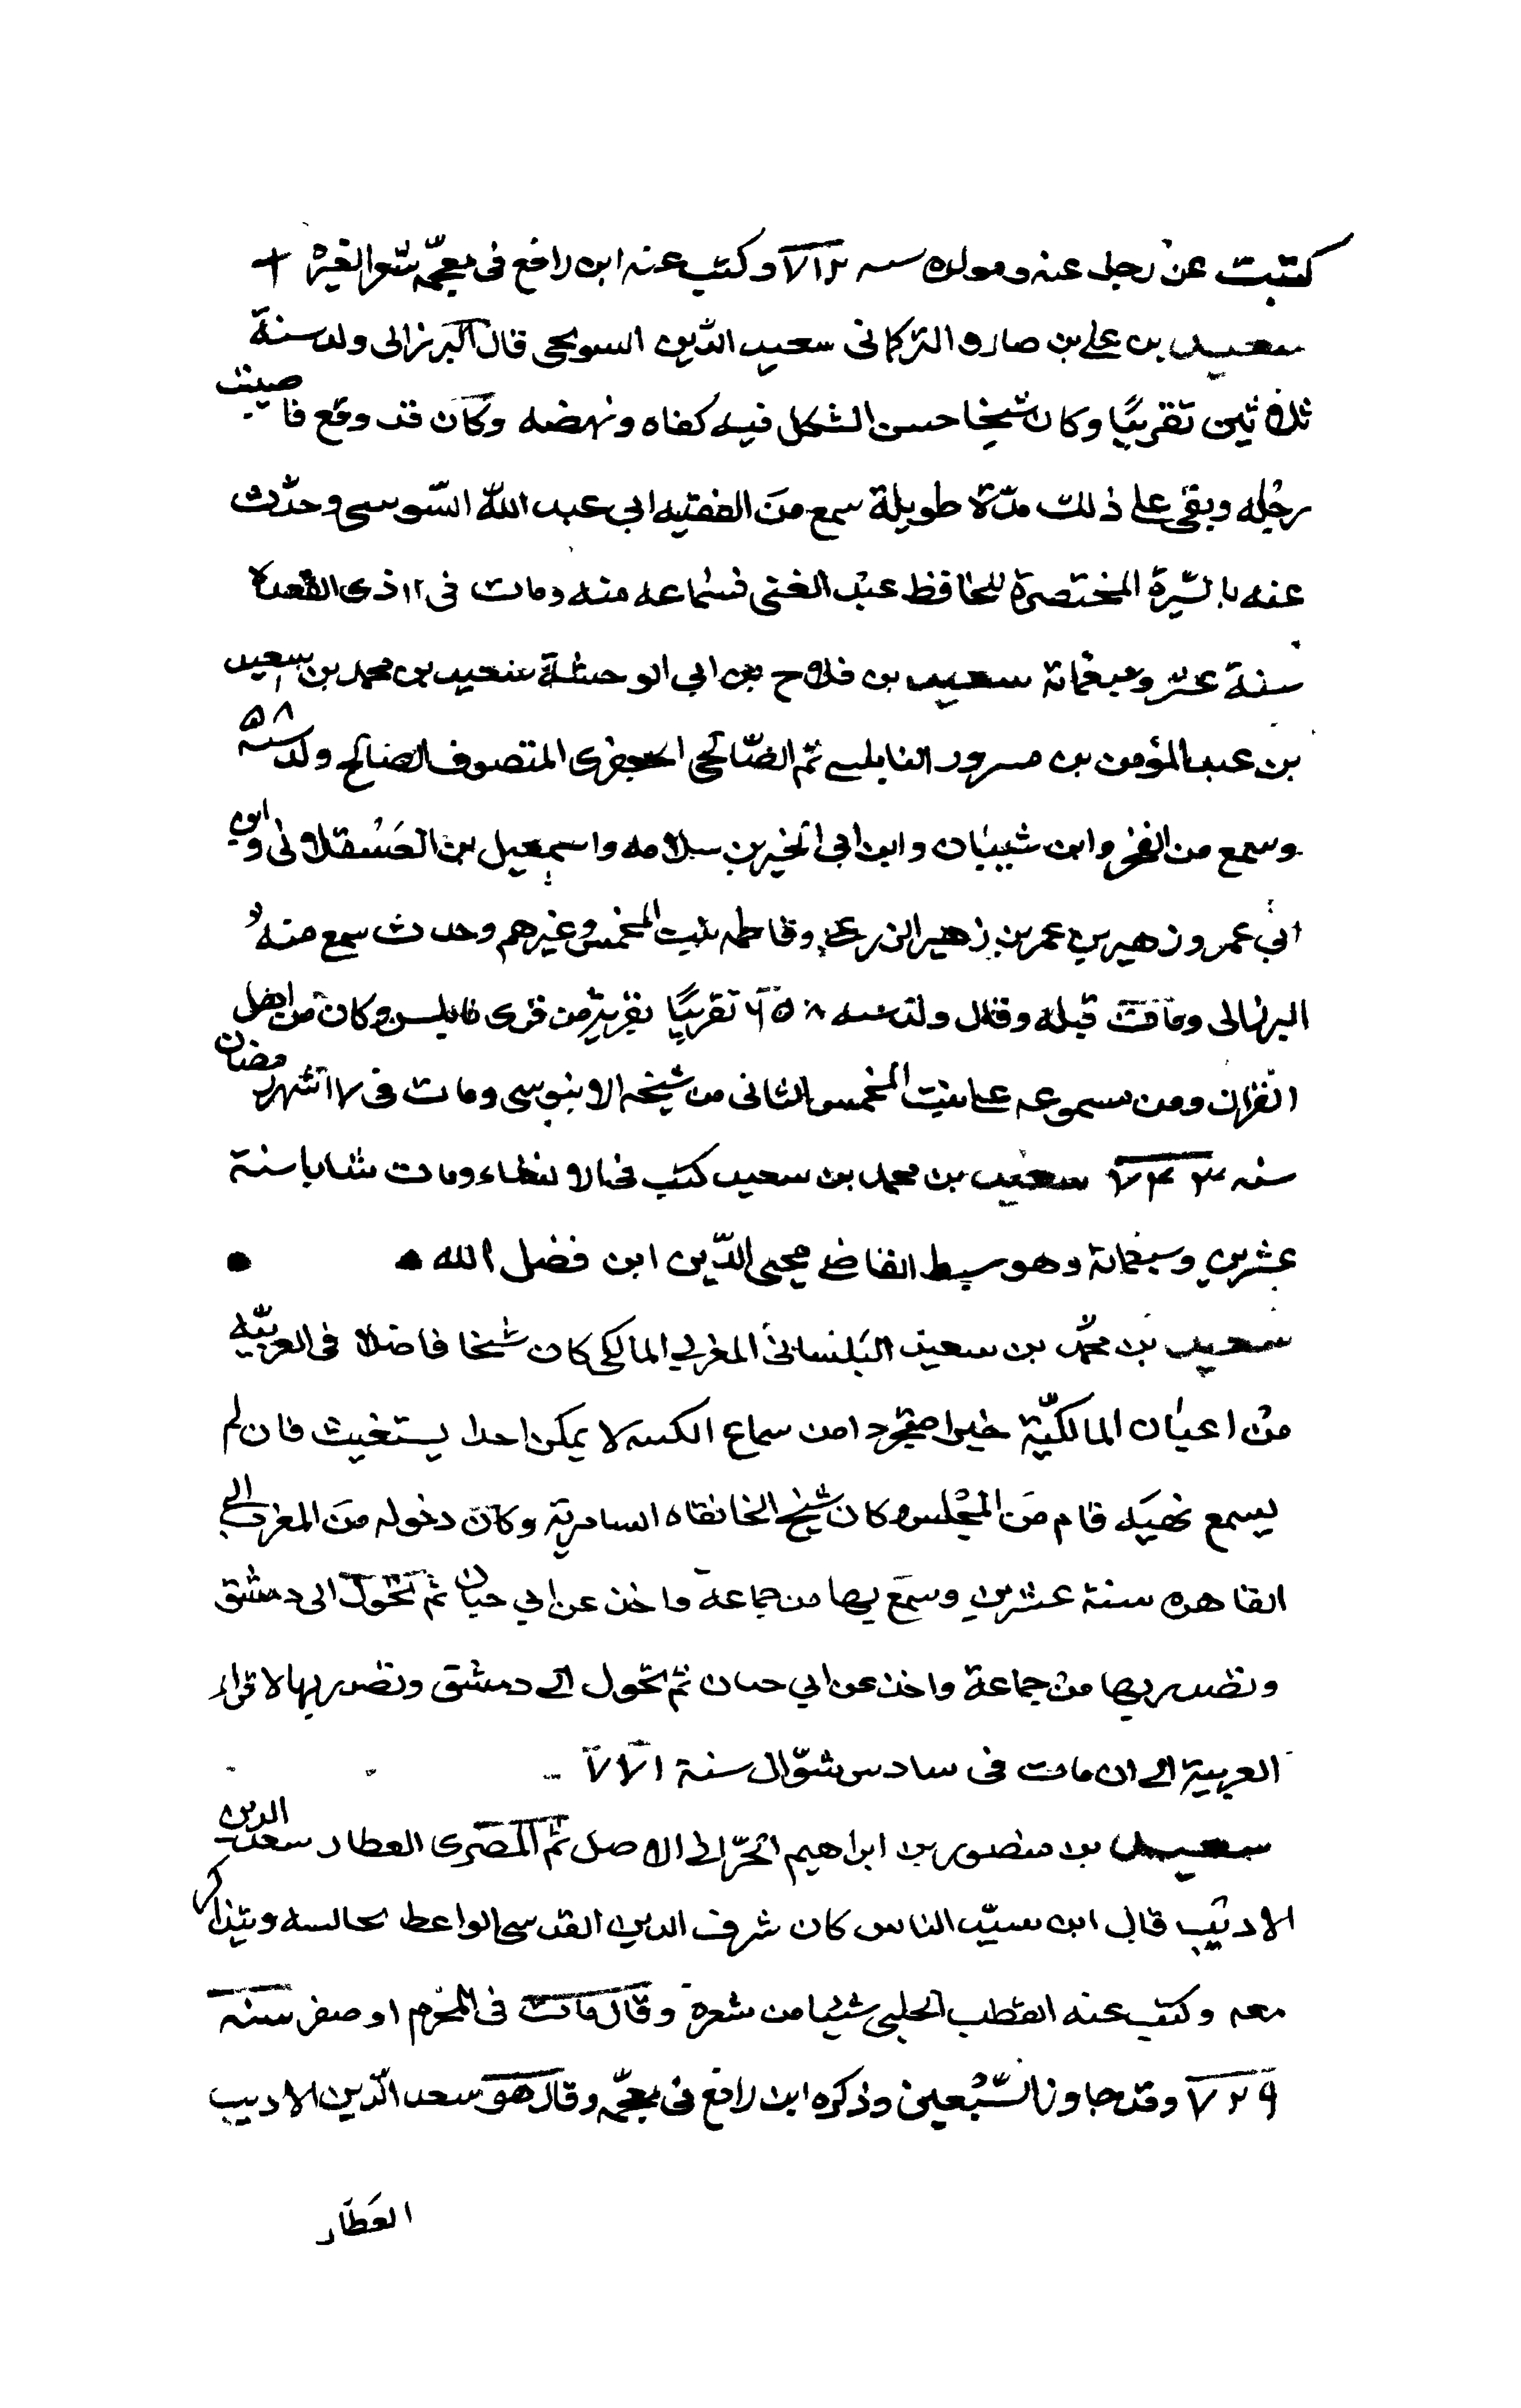 كتبت عن رجل عنه ومولده سنه ٧١٢ وكتب عنه ابن رافع في معجمه شعرا لغيره
سعيد بن علي بن صارو التركماني سعيد الدين السويحي قال البرزالي ولد سنة
ثلاثين تقريبًا وكان شيخا حسن الشكل فيه كفاه ونهضه وكان قد وقع فاصيبت
رجله وبقى على ذلك مدّة طويلة سمع من الفقيه ابي عبد الله السّوسي وحدّث
عنه بالسّيرة المختصرة للحافظ عبد الغني بسماعه منه ومات في ١٢ ذي القعدة
سنة عشر وسبعمائة سعيد بن فلاح بن ابي الوحش سعيد بن محمد بن سعيد
بن عبد المؤمن بن مسرور النابلسي ثم الصّالحي الجعفري المتصوف الصالح ولد سنه ٥٨
وسمع من الفخر وابن شيبان وابن ابي الخير بن سلامه واسمعيل بن العسقلاني وابن
ابي عمر وزهير بن عمر بن زهير الزرعي وفاطمه بنت المخمس وغيرهم وحدث سمع منه
البرزالي ومات قبله وقال ولد سنه ٦٥٨ تقريبًا بقرية من قرى نابلس وكان من اهل
القران ومن مسموعه على بنت المخمس الثاني من شيخه الابنوسي ومات في ١٧ شهر رمضان
سنه ٧٤٣ سعيد بن محمد بن سعيد كتب في الانشاء ومات شابا سنة
عشرين وسبعمائة وهو سبط القاضي محيي الدّين ابن فضل الله
سعيد بن محمّد بن سعيد البلنساني المغربي المالكي كان شيخا فاضلا في العربيّه
من اعيان المالكيّة خيرا متحرزا من سماع الكسه لا يمكن احدا يستغيث فان لم
يسمع نهيه قام من المجلس وكان شيخ الخانقاه السامرية وكان دخوله من المغرب الى
القاهره سنة عشرين وسمع بها من جماعة واخذ عن ابي حيان ثم تحول الى دمشق
وتصدر بها من جماعة واخذ عن ابي حيان ثم تحول الى دمشق وتصدر بها لاقراء
العربية الى ان مات في سادس شوّال سنة ٧٧١
سعيد بن منصور بن ابراهيم الحرّاني الاصل ثم المصري العطار سعد الدين
الاديب قال ابن سيّد الناس كان شرف الدين القدسي الواعظ يجالسه ويتذاكر
معه وكتب عنه القطب الحلبي شيئا من شعره وقال مات في المحرم او صفر سنه
٧٢٩ وقد جاوز السّبعين وذكره ابن رافع في معجمه وقال هو سعد الدّين الاديب
العَطّار